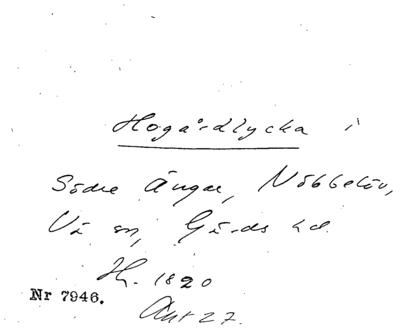 Hogårdlycka i
Södre Ängar, Nöbbelöv,
Vä sn, Gärds hd.
H. 1820
Nr 7946.
Akt 27.